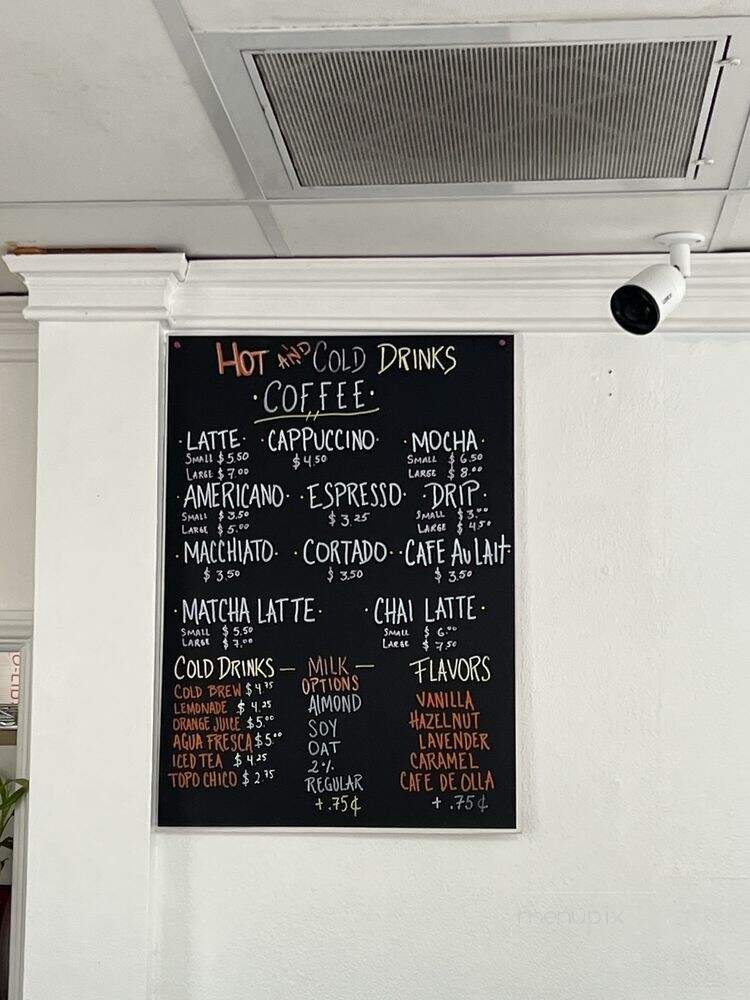 HOT AND COLD DRINKS
·COFFEE·
·LATTE· ·CAPPUCCINO· ·MOCHA·
SMALL $5.50 $4.50 SMALL $6.50
LARGE $7.00 LARGE $8.00
·AMERICANO· ·ESPRESSO· ·DRIP·
SMALL $3.50 $3.25 SMALL $3.00
LARGE $5.00 LARGE $4.50
·MACCHIATO· ·CORTADO· ·CAFE Au LAit·
$3.50 $3.50 $3.50
·MATCHA LATTE· ·CHAI LATTE·
SMALL $5.50 SMALL $6.00
LARGE $7.00 LARGE $7.50
COLD DRINKS — MILK — FLAVORS
OPTIONS
COLD BREW $4.75
LEMONADE $4.25
ORANGE JUICE $5.00
AGUA FRESCA $5.00
ICED TEA $4.25
TOPO CHICO $2.75
ALMOND
SOY
OAT
2%
REGULAR
+.75¢
VANILLA
HAZELNUT
LAVENDER
CARAMEL
CAFE DE OLLA
+.75¢
menupix